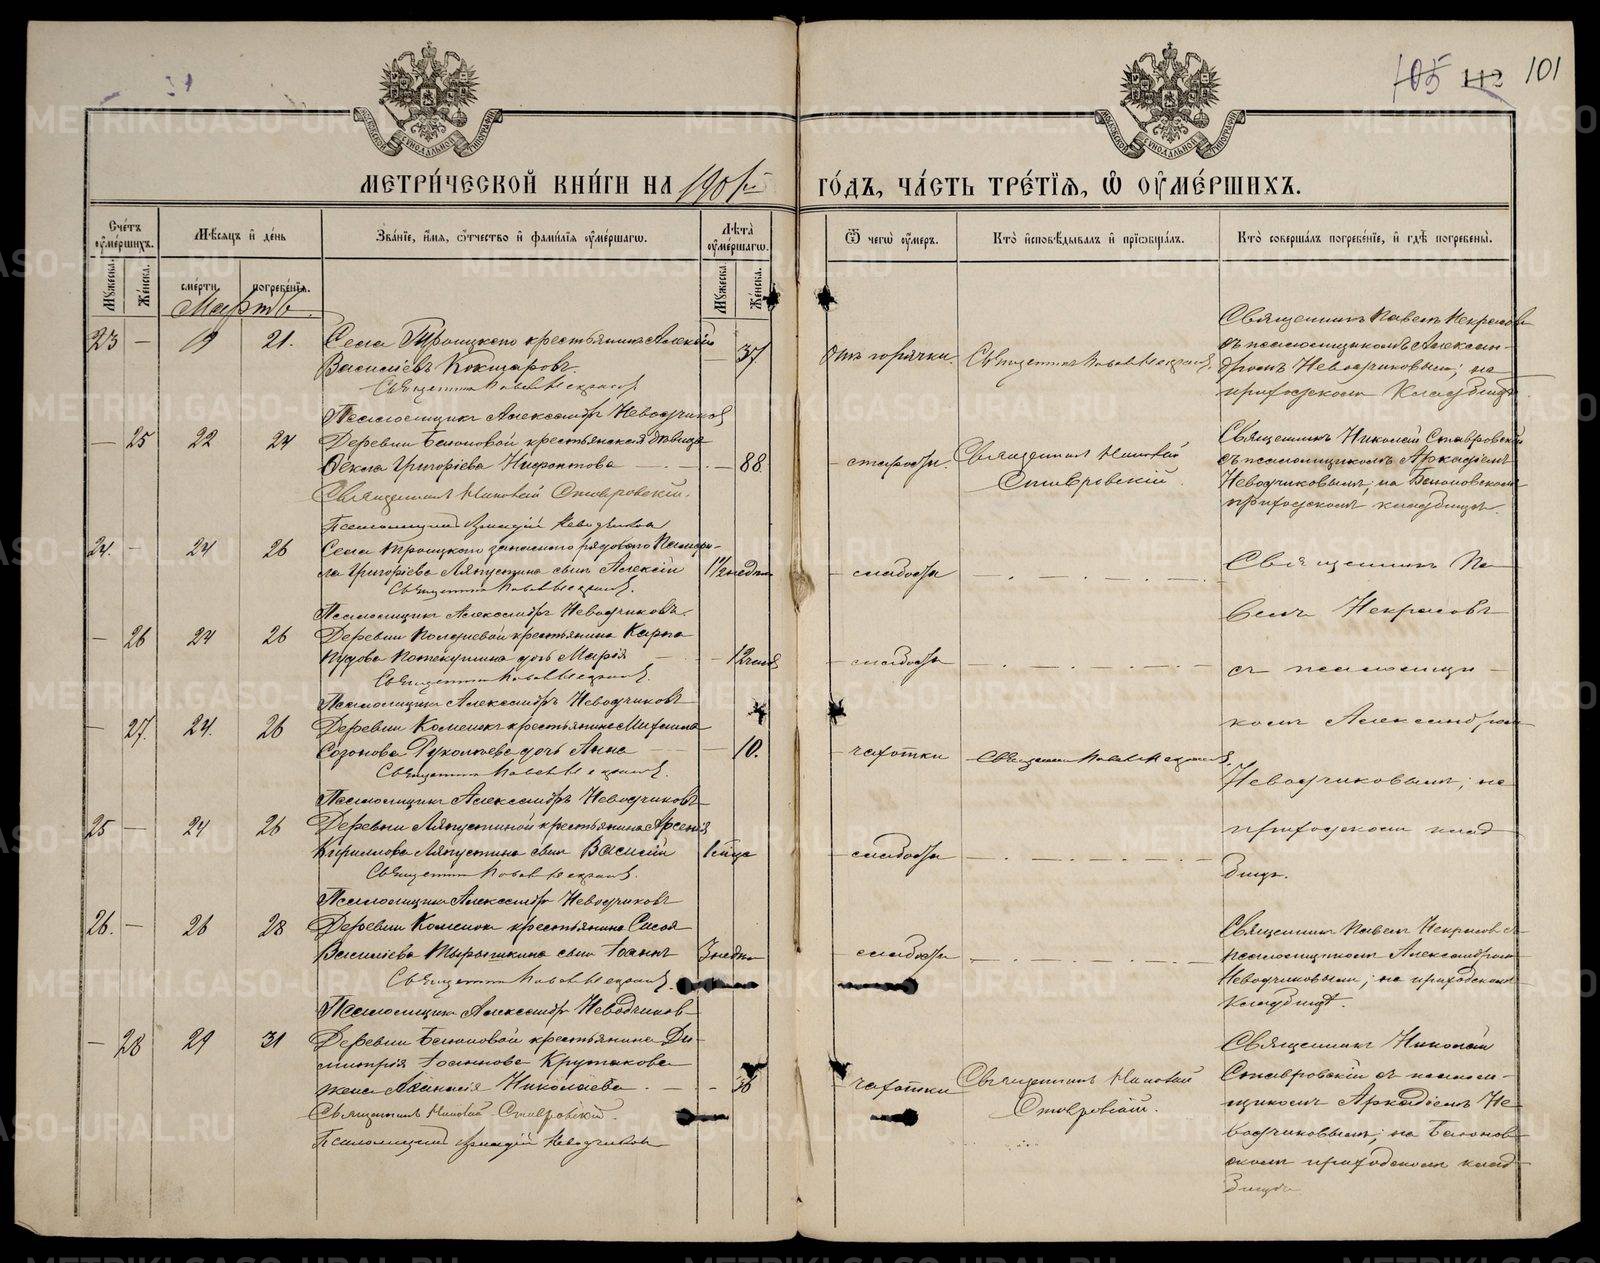 105 112 101
МЕТРИ́ЧЕСКОЙ КНИ́ГИ НА 1901й
ГО́ДЪ, ЧА́СТЬ ТРЕ́ТЇѦ, Ѽ ОУ҆МЕ́РШИХЪ.
Сче́тъ оу҆ме́ршихъ.
Мꙋжеска.
Же́нска.
Мѣ́сѧцъ и҆ де́нь
сме́рти.
погребе́нїѧ.
Зва́нїе, и҆́мѧ, ѻ҆́тчество и҆ фами́лїѧ оу҆ме́ршагѡ.
Лѣ́та оу҆ме́ршагѡ.
Мꙋжеска.
Же́нска.
Ѿ чегѡ̀ оу҆́меръ.
Кто̀ и҆сповѣ́дывалъ и҆ прїѡбща́лъ.
Кто̀ соверша́лъ погребе́нїе, и҆ гдѣ̀ погребены̀.
Мартъ
23 — 19 21. Села Троицкого крестьянинъ Алексій
Васильевъ Кокшаровъ. 37
Священникъ Павелъ Некрасовъ.
Псаломщикъ Александръ Неводчиковъ
отъ горячки. Священникъ Павелъ Некрасовъ.
Священникъ Павелъ Некрасовъ
съ псаломщикомъ Алексан-
дромъ Неводчиковымъ; на
приходскомъ кладбищѣ.
— 25 22 24 Деревни Белоновой крестьянская дѣвица
Ѳекла Григоріева 88
Священникъ Николай Ставровскій.
Псаломщикъ Аркадій Неводчиковъ
старости. Священникъ Николай
Ставровскій.
Священникъ Николай Ставровскій
съ псаломщикомъ Аркадіемъ
Неводчиковымъ; на Белоновскомъ
приходскомъ кладбищѣ.
24. — 24 26 Села Троицкого запасного рядового
Григоріева Ляпустина сынъ Алексій 1½ недѣли
Священникъ Павелъ Некрасовъ.
Псаломщикъ Александръ Неводчиковъ.
слабости
Священникъ Па-
велъ Некрасовъ
съ псаломщи-
комъ Александромъ
Неводчиковымъ; на
приходскомъ клад-
бищѣ.
— 26 24 26 Деревни крестьянина Карпа
дочь Марія 12
Священникъ Павелъ Некрасовъ.
Псаломщикъ Александръ Неводчиковъ
слабости
— 27. 24. 26 Деревни Каменки крестьянина Михаила
Созонова дочь Анна 10.
Священникъ Павелъ Некрасовъ.
Псаломщикъ Александръ Неводчиковъ
чахотки Священникъ Павелъ Некрасовъ.
25 — 24 26 Деревни Ляпустиной крестьянина Арсенія
Кириллова Ляпустина сынъ Василій
Священникъ Павелъ Некрасовъ.
Псаломщикъ Александръ Неводчиковъ
слабости
26. — 26 28 Деревни Каменки крестьянина Сисоя
Васильева сынъ Іоаннъ 3 недѣли
Священникъ Павелъ Некрасовъ.
Псаломщикъ Александръ Неводчиковъ
слабости
Священникъ Павелъ Некрасовъ съ
псаломщикомъ Александромъ
Неводчиковымъ; на приходскомъ
кладбищѣ.
— 28 29 31 Деревни Белоновой крестьянина Ди-
митрія Іоаннова Крутакова
жена Аѳанасія Николаева 36
Священникъ Николай Ставровскій.
Псаломщикъ Аркадій Неводчиковъ
чахотки Священникъ Николай
Ставровскій.
Священникъ Николай
Ставровскій съ псалом-
щикомъ Аркадіемъ Не-
водчиковымъ; на Белонов-
скомъ приходскомъ клад-
бищѣ
METRIKI.GASO-URAL.RU